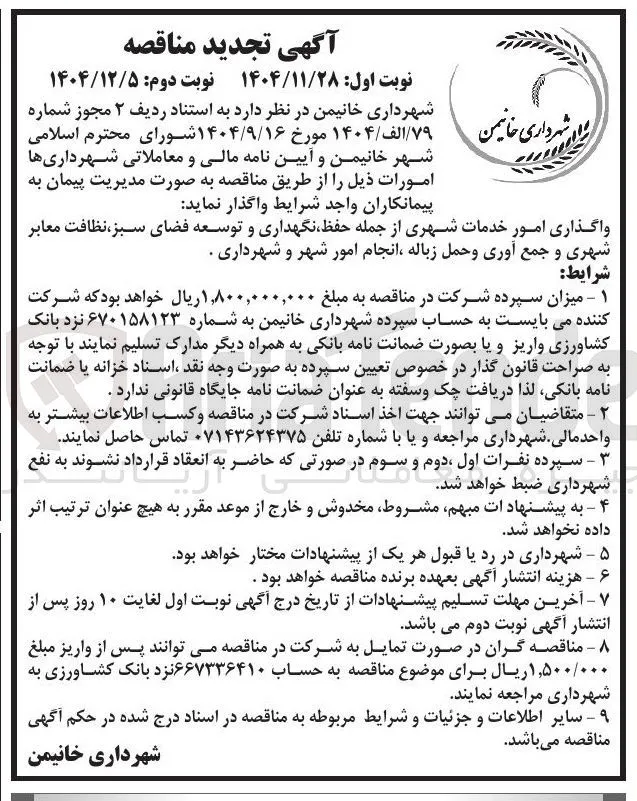 آگهی تجدید مناقصه
نوبت اول: ۱۴۰۴/۱۱/۲۸ نوبت دوم: ۱۴۰۴/۱۲/۵
شهرداری خانیمن
شهرداری خانیمن در نظر دارد به استناد ردیف ۲ مجوز شماره
۷۹/الف/۱۴۰۴ مورخ ۱۴۰۴/۹/۱۶شورای محترم اسلامی
شهر خانیمن و آیین نامه مالی و معاملاتی شهرداری‌ها
امورات ذیل را از طریق مناقصه به صورت مدیریت پیمان به
پیمانکاران واجد شرایط واگذار نماید:
واگذاری امور خدمات شهری از جمله حفظ،نگهداری و توسعه فضای سبز،نظافت معابر
شهری و جمع آوری وحمل زباله ،انجام امور شهر و شهرداری .
شرایط:
۱ - میزان سپرده شرکت در مناقصه به مبلغ ۱,۸۰۰,۰۰۰,۰۰۰ریال خواهد بودکه شرکت
کننده می بایست به حساب سپرده شهرداری خانیمن به شماره ۶۷۰۱۵۸۱۲۳ نزد بانک
کشاورزی واریز و یا بصورت ضمانت نامه بانکی به همراه دیگر مدارک تسلیم نمایند با توجه
به صراحت قانون گذار در خصوص تعیین سپرده به صورت وجه نقد ،اسناد خزانه یا ضمانت
نامه بانکی، لذا دریافت چک وسفته به عنوان ضمانت نامه جایگاه قانونی ندارد .
۲ - متقاضیان می توانند جهت اخذ اسناد شرکت در مناقصه وکسب اطلاعات بیشتر به
واحدمالی.شهرداری مراجعه و یا با شماره تلفن ۰۷۱۴۳۶۲۴۳۷۵ تماس حاصل نمایند.
۳ - سپرده نفرات اول ،دوم و سوم در صورتی که حاضر به انعقاد قرارداد نشوند به نفع
شهرداری ضبط خواهد شد.
۴ - به پیشنهاد ات مبهم، مشروط، مخدوش و خارج از موعد مقرر به هیچ عنوان ترتیب اثر
داده نخواهد شد.
۵ - شهرداری در رد یا قبول هر یک از پیشنهادات مختار خواهد بود.
۶ - هزینه انتشار آگهی بعهده برنده مناقصه خواهد بود .
۷ - آخرین مهلت تسلیم پیشنهادات از تاریخ درج آگهی نوبت اول لغایت ۱۰ روز پس از
انتشار آگهی نوبت دوم می باشد.
۸ - مناقصه گران در صورت تمایل به شرکت در مناقصه می توانند پس از واریز مبلغ
۱,۵۰۰/۰۰۰ریال برای موضوع مناقصه به حساب ۶۶۷۳۳۶۴۱۰نزد بانک کشاورزی به
شهرداری مراجعه نمایند.
۹ - سایر اطلاعات و جزئیات و شرایط مربوطه به مناقصه در اسناد درج شده در حکم آگهی
مناقصه می‌باشد.
شهرداری خانیمن